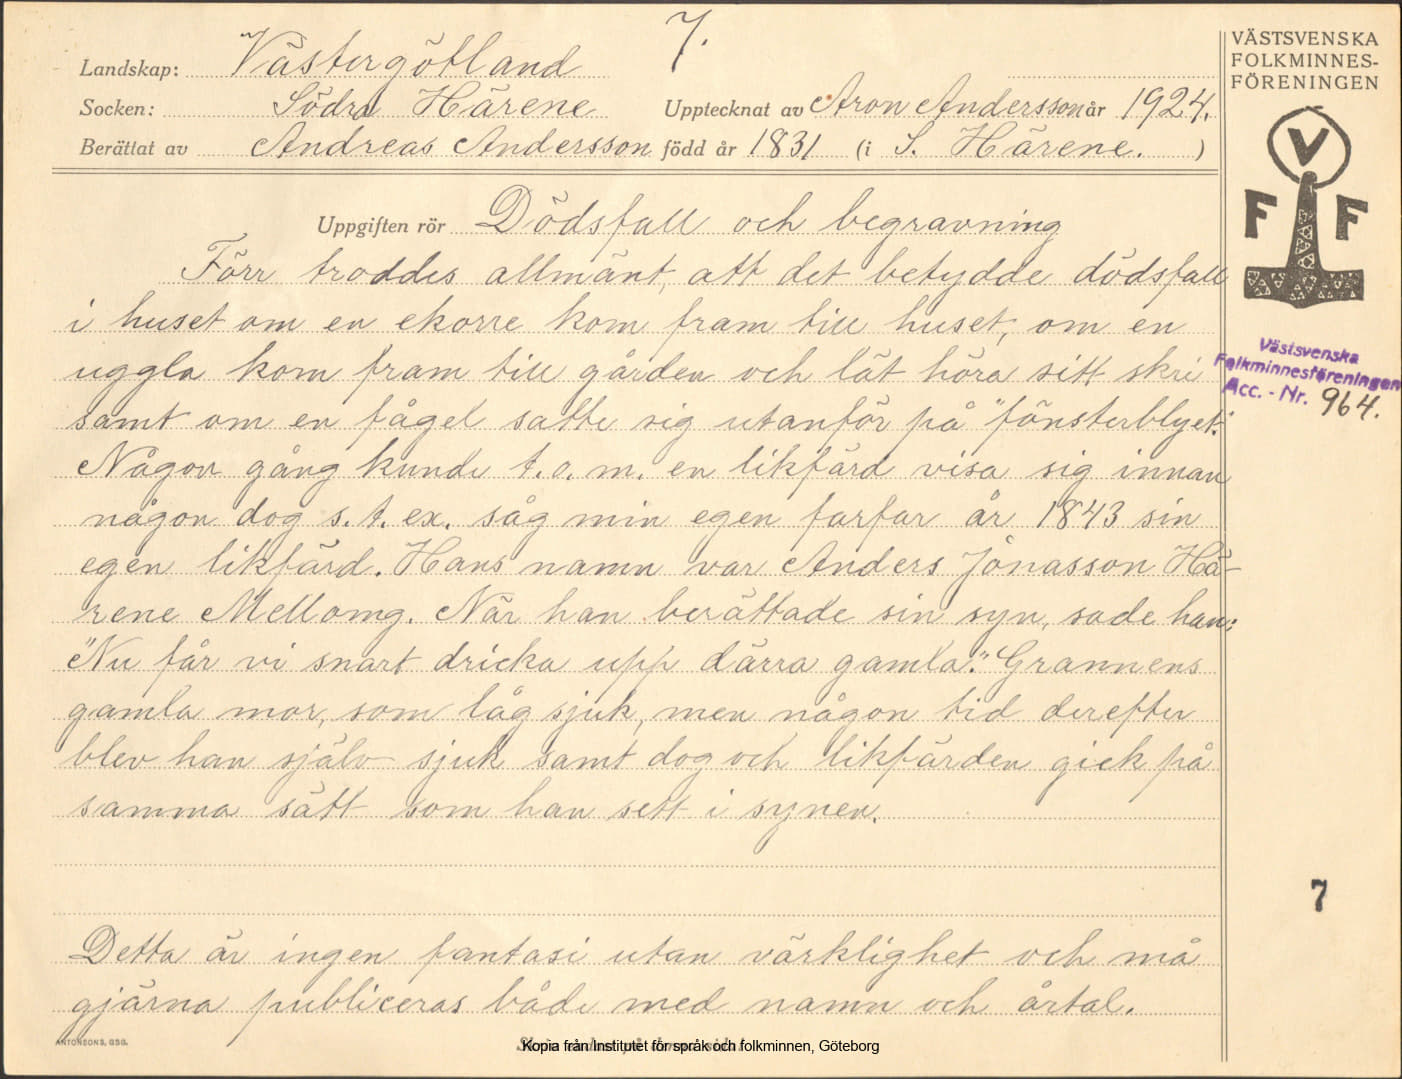 7.
Landskap: Västergötland
Socken: Södra Härene Upptecknat av Aron Andersson år 1924.
Berättat av Andreas Andersson född år 1831 (i S. Härene. )
Uppgiften rör Dödsfall och begravning
Förr troddes allmänt, att det betydde dödsfall
i huset om en ekorre kom fram till huset, om en
uggla kom fram till gården och lät höra sitt skri
samt om en fågel satte sig utanför på "fönsterblyet."
Någon gång kunde t.o.m. en likfärd visa sig innan
någon dog s.t.ex. såg min egen farfar år 1843 sin
egen likfärd. Hans namn var Anders Jönasson Hä-
rene Mellomg. När han berättade sin syn, sade han:
"Nu får vi snart dricka upp därra gamla." Grannens
gamla mor, som låg sjuk, men någon tid derefter
blev han själv sjuk samt dog och likfärden gick på
samma sätt som han sett i synen.
Detta är ingen fantasi utan värklighet och må
gjärna publiceras både med namn och årtal.
ANTONSONS, GBG.
Kopia från Institutet för språk och folkminnen, Göteborg
VÄSTSVENSKA
FOLKMINNES-
FÖRENINGEN
V
F F
Västsvenska
Folkminnesföreningen
Acc. - Nr. 964.
7